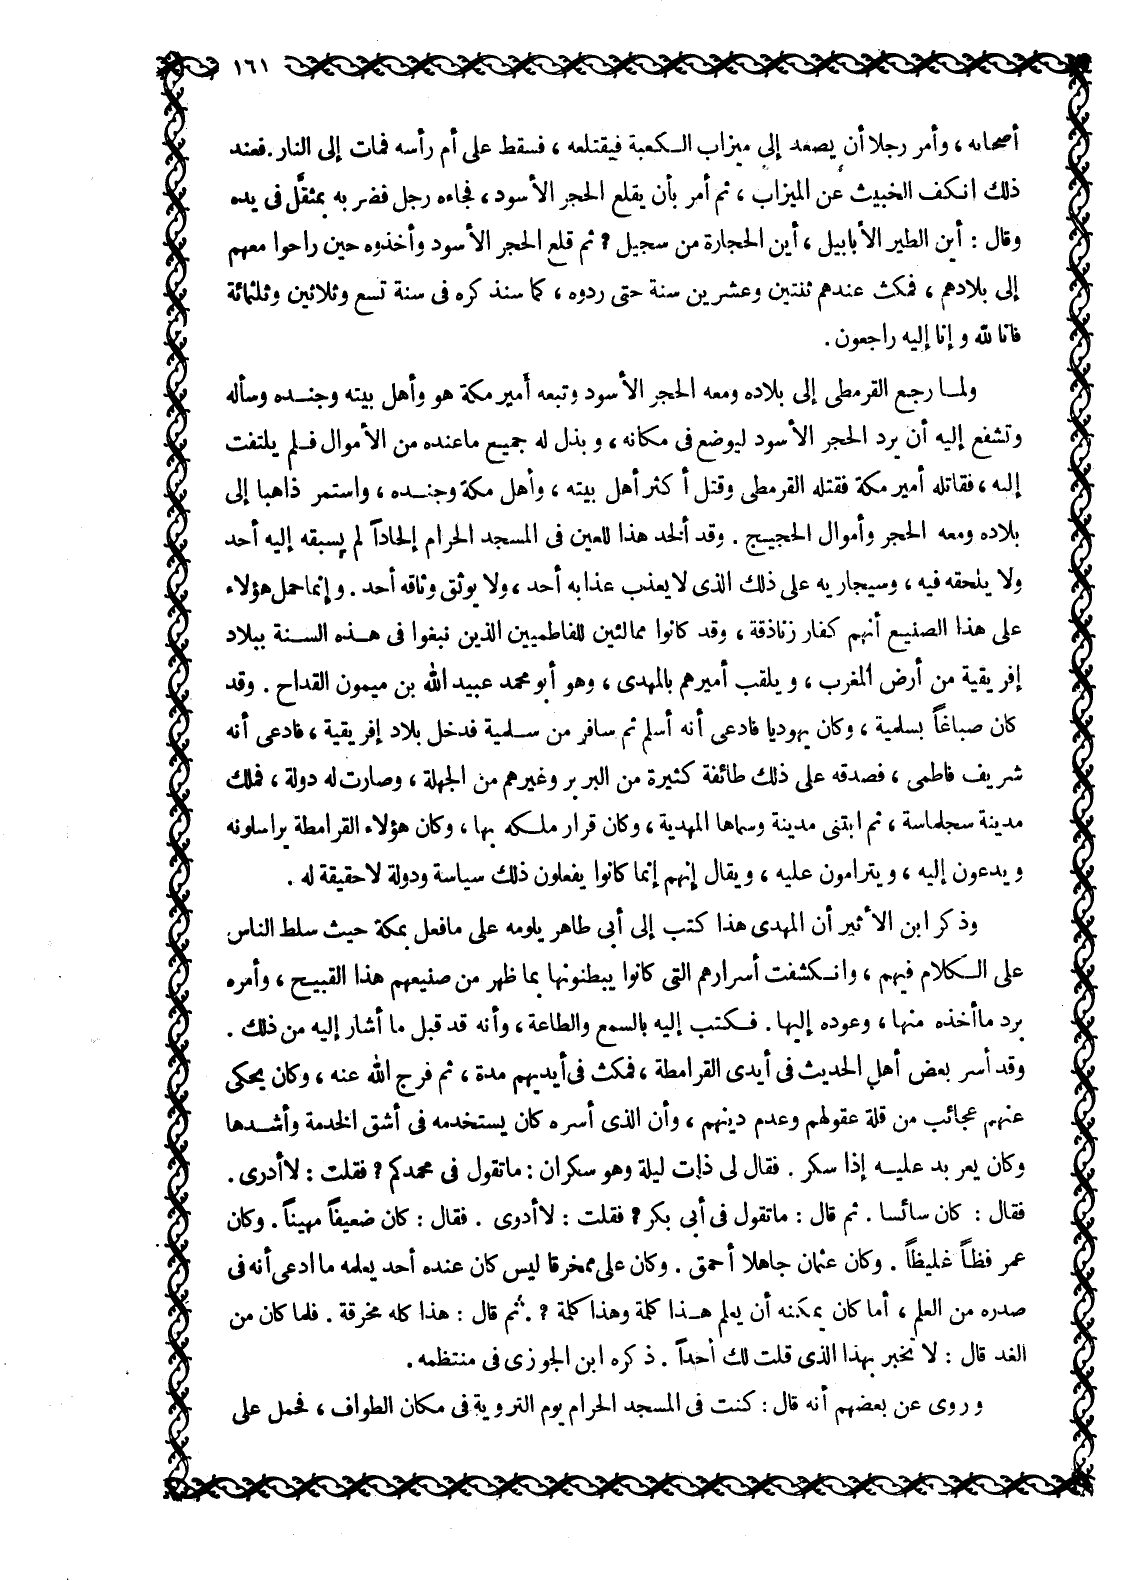 ١٦١
أصحابه ، وأمر رجلا أن يصعد إلى ميزاب الكعبة فيقتلعه ، فسقط على أم رأسه فمات إلى النار . فعند
ذلك انكف الخبيث عن الميزاب ، ثم أمر بأن يقلع الحجر الأسود ، فجاءه رجل فضربه بمثقَّل فى يده
وقال : أين الطير الأبابيل ، أين الحجارة من سجيل ؟ ثم قلع الحجر الأسود وأخذوه حين راحوا معهم
إلى بلادهم ، فمكث عندهم ثنتين وعشرين سنة حتى ردوه ، كما سنذكره فى سنة تسع وثلاثين وثلثمائة
فانا لله و إنا إليه راجعون .
ولما رجع القرمطى إلى بلاده ومعه الحجر الأسود وتبعه أمير مكة هو وأهل بيته وجنده وسأله
وتشفع إليه أن يرد الحجر الأسود ليوضع فى مكانه ، و بذل له جميع ماعنده من الأموال فلم يلتفت
إليه ، فقاتله أمير مكة فقتله القرمطى وقتل أكثر أهل بيته ، وأهل مكة وجنده ، واستمر ذاهبا إلى
بلاده ومعه الحجر وأموال الحجيج . وقد ألحد هذا اللعين فى المسجد الحرام إلحاداً لم يسبقه إليه أحد
ولا يلحقه فيه ، وسيجاريه على ذلك الذى لا يعذب عذابه أحد ، ولا يوثق وثاقه أحد . و إنما حمل هؤلاء
على هذا الصنيع أنهم كفار زنادقة ، وقد كانوا ممالئين للفاطميين الذين نبغوا فى هذه السنة ببلاد
إفريقية من أرض المغرب ، و يلقب أميرهم بالمهدى ، وهو أبو محمد عبيد الله بن ميمون القداح . وقد
كان صباغاً بسلمية ، وكان يهوديا فادعى أنه أسلم ثم سافر من سلمية فدخل بلاد إفريقية ، فادعى أنه
شريف فاطمى ، فصدقه على ذلك طائفة كثيرة من البربر وغيرهم من الجهلة ، وصارت له دولة ، فملك
مدينة سجلماسة ، ثم ابتنى مدينة وسماها المهدية ، وكان قرار ملكه بها ، وكان هؤلاء القرامطة يراسلونه
و يدعون إليه ، و يترامون عليه ، و يقال إنهم إنما كانوا يفعلون ذلك سياسة ودولة لا حقيقة له .
وذكر ابن الأثير أن المهدى هذا كتب إلى أبى طاهر يلومه على مافعل بمكة حيث سلط الناس
على الكلام فيهم ، وانكشفت أسرارهم التى كانوا يبطنونها بما ظهر من صنيعهم هذا القبيح ، وأمره
برد ما أخذه منها ، وعوده إليها . فكتب إليه بالسمع والطاعة ، وأنه قد قبل ما أشار إليه من ذلك .
وقد أسر بعض أهل الحديث فى أيدى القرامطة ، فمكث فى أيديهم مدة ، ثم فرج الله عنه ، وكان يحكى
عنهم عجائب من قلة عقولهم وعدم دينهم ، وأن الذى أسره كان يستخدمه فى أشق الخدمة وأشدها
وكان يعربد عليه إذا سكر . فقال لى ذات ليلة وهو سكران : ماتقول فى محمدكم ؟ فقلت : لا أدرى .
فقال : كان سائسا . ثم قال : ماتقول فى أبى بكر ؟ فقلت : لا أدرى . فقال : كان ضعيفاً مهيناً . وكان
عمر فظاً غليظاً . وكان عثمان جاهلا أحمق . وكان على ممخرقا ليس كان عنده أحد يعلمه ما ادعى أنه فى
صدره من العلم ، أما كان يمكنه أن يعلم هذا كلمة وهذا كلمة ؟ . ثم قال : هذا كله مخرقة . فلما كان من
الغد قال : لا تخبر بهذا الذى قلت لك أحداً . ذكره ابن الجوزى فى منتظمه .
و روى عن بعضهم أنه قال : كنت فى المسجد الحرام يوم التروية فى مكان الطواف ، فحمل على